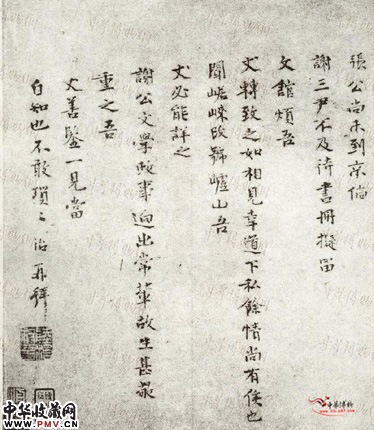 張公尚未到京倘
謝三尹不及待書冊擬留
文館煩吾
丈轉致之如相見幸道下私餘情尚有候也
聞改號山吾
丈必能詳之
謝公文學政事迥出常輩故生甚最
重之吾
丈善鑒一見當
自知也不敢瑣〻治再拜
中华收藏网
WWW.PMV.CN
中華博物